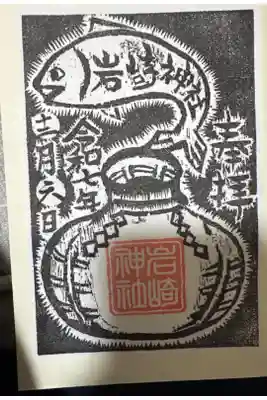 奉拝
岩崎神社
令和七年
十二月六日
岩崎
神社